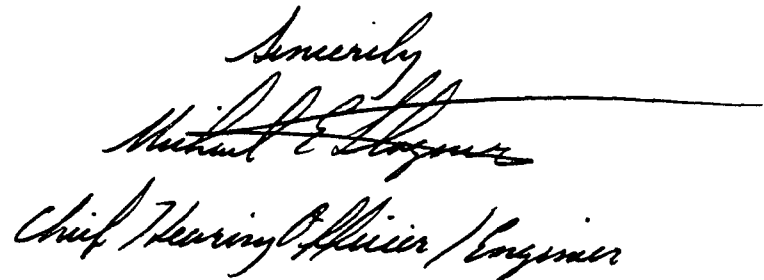 Sincerily
Michael E Stogner
Chief Hearing Officier / Engineer